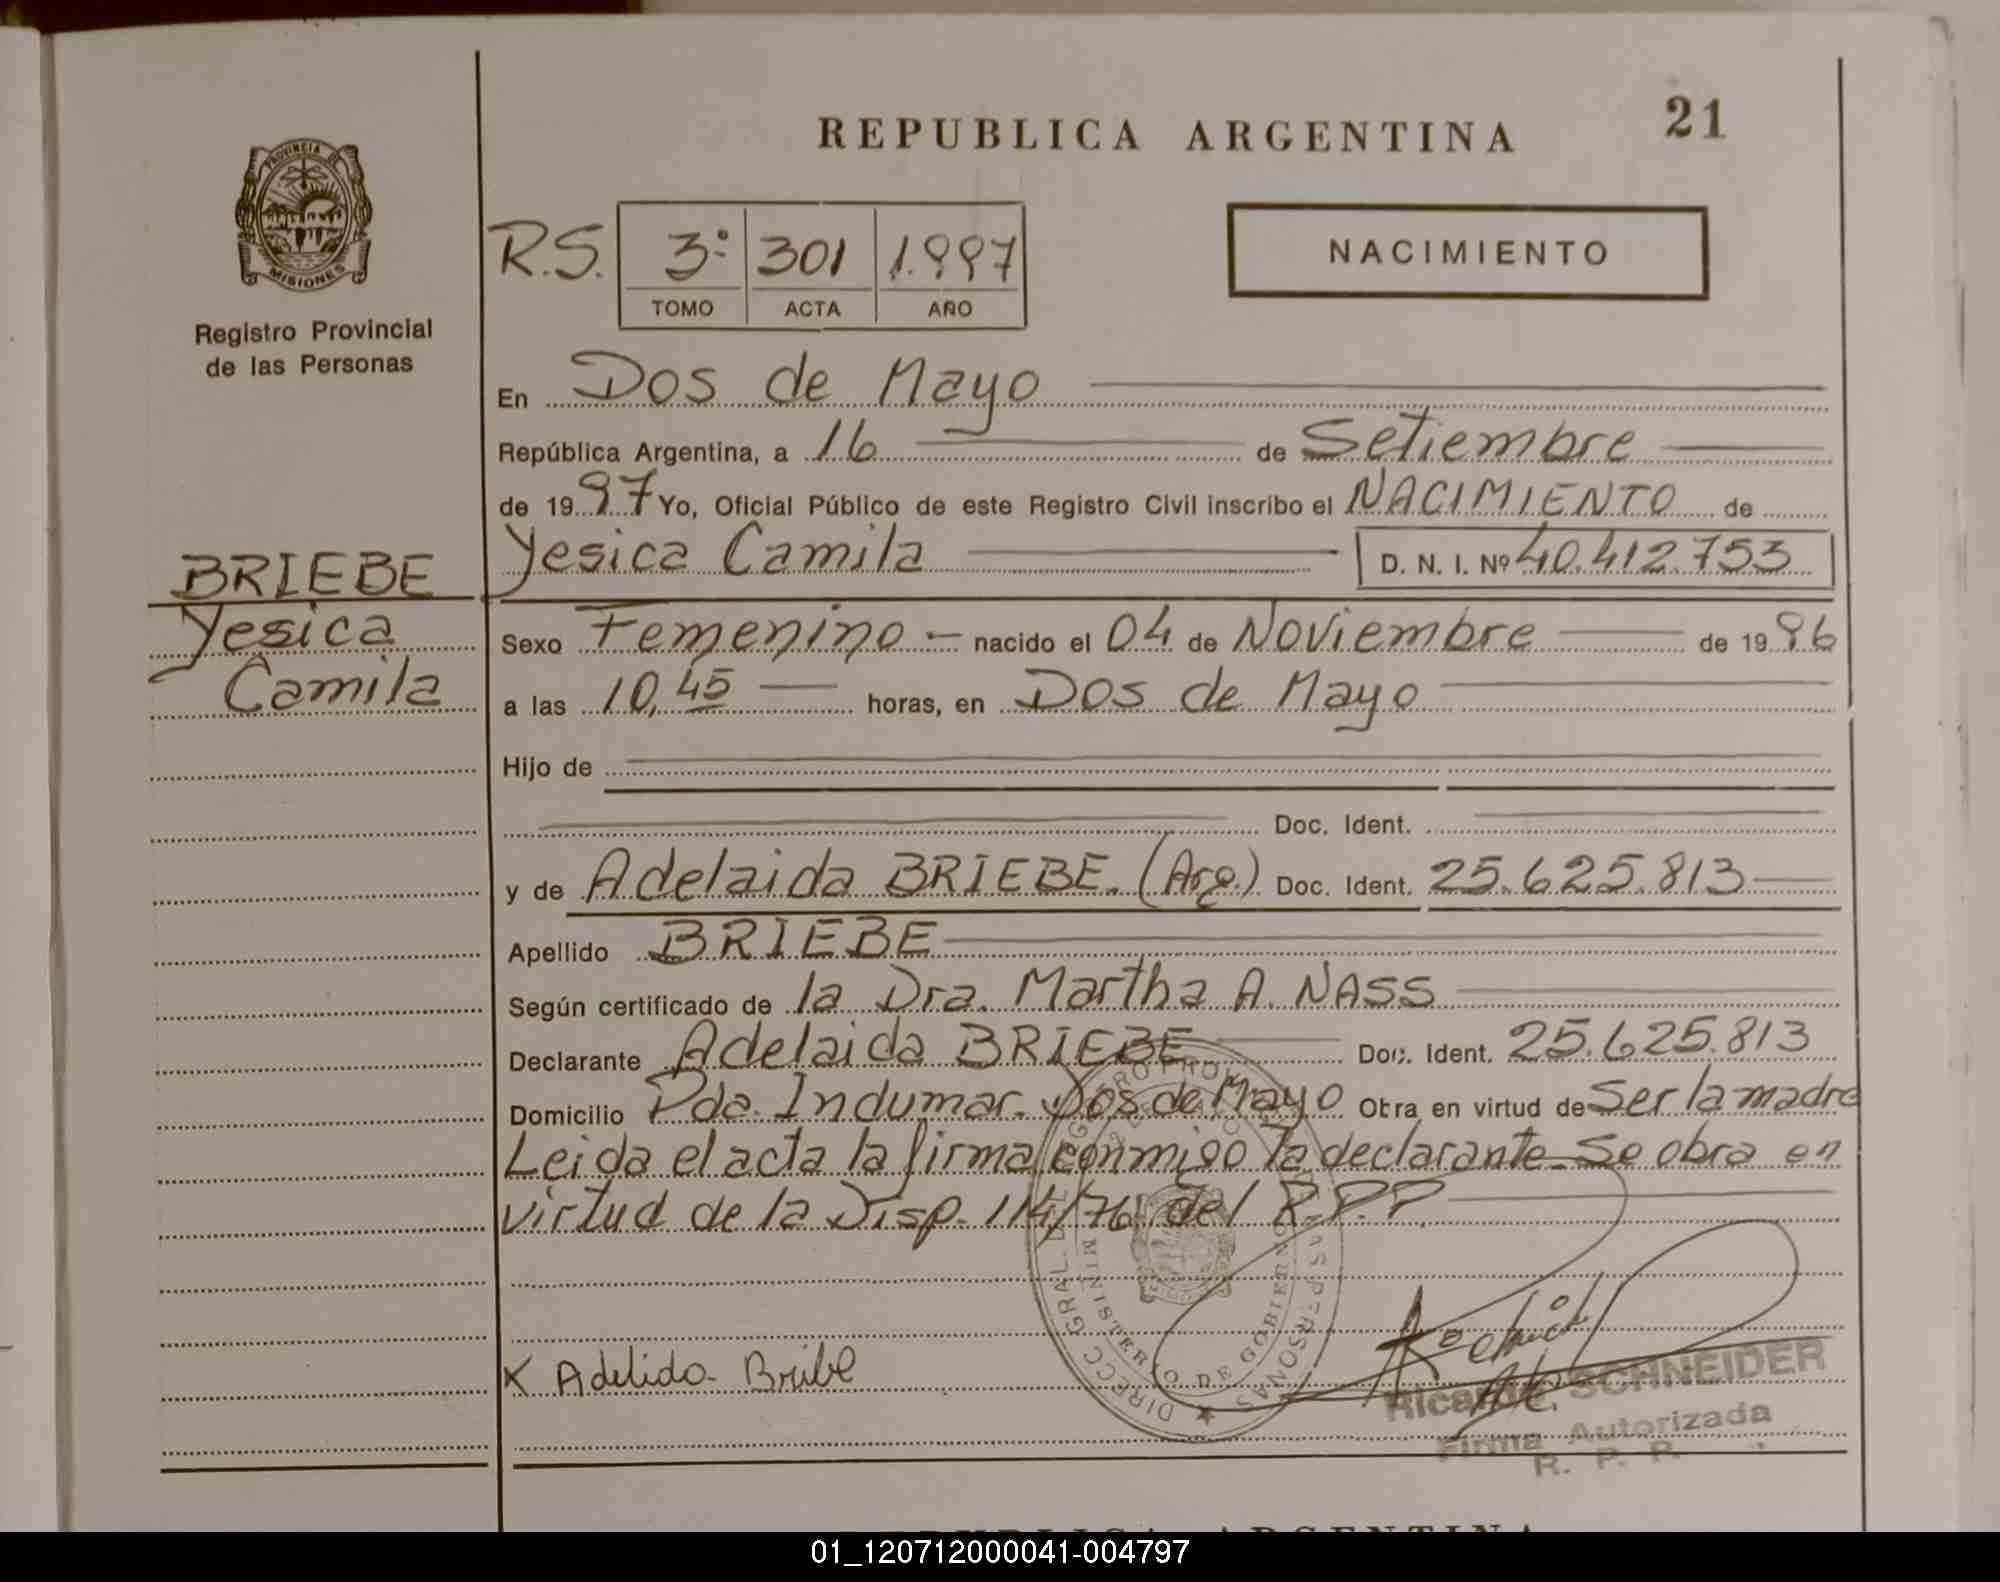 REPUBLICA ARGENTINA
21
PROVINCIA DE
MISIONES
Registro Provincial
de las Personas
R.S.
3º 301 1.997
TOMO ACTA AÑO
NACIMIENTO
En Dos de Mayo
República Argentina, a 16 de Setiembre
de 1997 Yo, Oficial Público de este Registro Civil inscribo el NACIMIENTO de
BRIEBE
Yesica
Camila
Yesica Camila D. N. I. Nº 40.412.753
Sexo Femenino - nacido el 04 de Noviembre de 1996
a las 10,45 horas, en Dos de Mayo
Hijo de
Doc. Ident.
y de Adelaida BRIEBE. (Arg.) Doc. Ident. 25.625.813
Apellido BRIEBE
Según certificado de la Dra. Martha A. NASS
Declarante Adelaida BRIEBE Doc. Ident. 25.625.813
Domicilio Pda. Indumar. Dos de Mayo Obra en virtud de Ser la madre
Leida el acta la firma conmigo la declarante. Se obra en
virtud de la Disp. 114/76 del R.P.P.
X Adelida Bribe
DIRECC. GRAL. DEL REGISTRO PROV. DE LAS PERSONAS
MINISTERIO DE GOBIERNO
Ricardo SCHNEIDER
Firma Autorizada
R. P. P.
REPUBLICA ARGENTINA
01_120712000041-004797